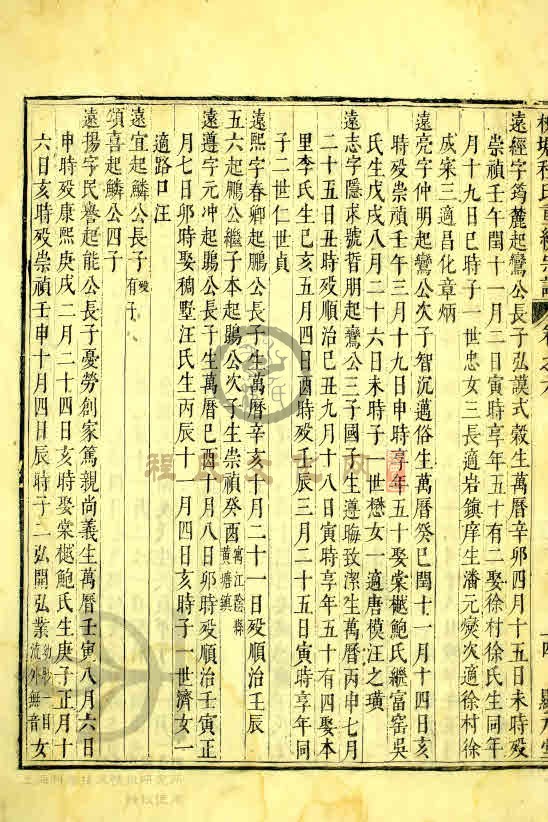 遠經字筠麓起鸞公長子弘謨式榖生萬曆辛卯四月十五日未時殁
崇禎壬午閏十一月二日寅時享年五十有二娶徐村徐氏生同年
月十九日巳時子一世忠女三長適岩鎮庠生潘元爕次適徐村徐
成寀三適昌化章炳
遠亮字仲明起鸞公次子智沉邁俗生萬曆癸巳閏十一月十四日亥
時殁崇禎壬午三月十九日申時享年五十娶棠樾鮑氏繼富窑吳
氏生戊戌八月二十六日未時子一世懋女一適唐模汪之璜
遠志字隱求號哲朋起鸞公三子國子生遵晦致潔生萬曆丙申七月
二十五日丑時殁順治己丑九月十八日寅時享年五十有四娶本
里李氏生己亥五月四日酉時殁壬辰三月二十五日寅時享年同
子二世仁世貞
遠熙字春卿起鵬公長子生萬曆辛亥十月二十一日殁順治壬辰
五六起鵬公繼子本起鵰公次子生崇禎癸酉寓江陰縣黃塘鎮
遠遵字元冲起鵰公長子生萬曆己酉十月八日卯時殁順治壬寅正
月七日卯時娶稠墅汪氏生丙辰十一月四日亥時子一世濟女一
適路口汪
遠宜起鱗公長子有子
頌喜起鱗公四子
遠揚字民譽起能公長子憂勞創家篤親尚義生萬曆壬寅八月六日
申時殁康熙庚戌二月二十四日亥時娶棠樾鮑氏生庚子正月十
六日亥時殁崇禎壬申十月四日辰時子二弘開弘業流外無音女
程氏文化网